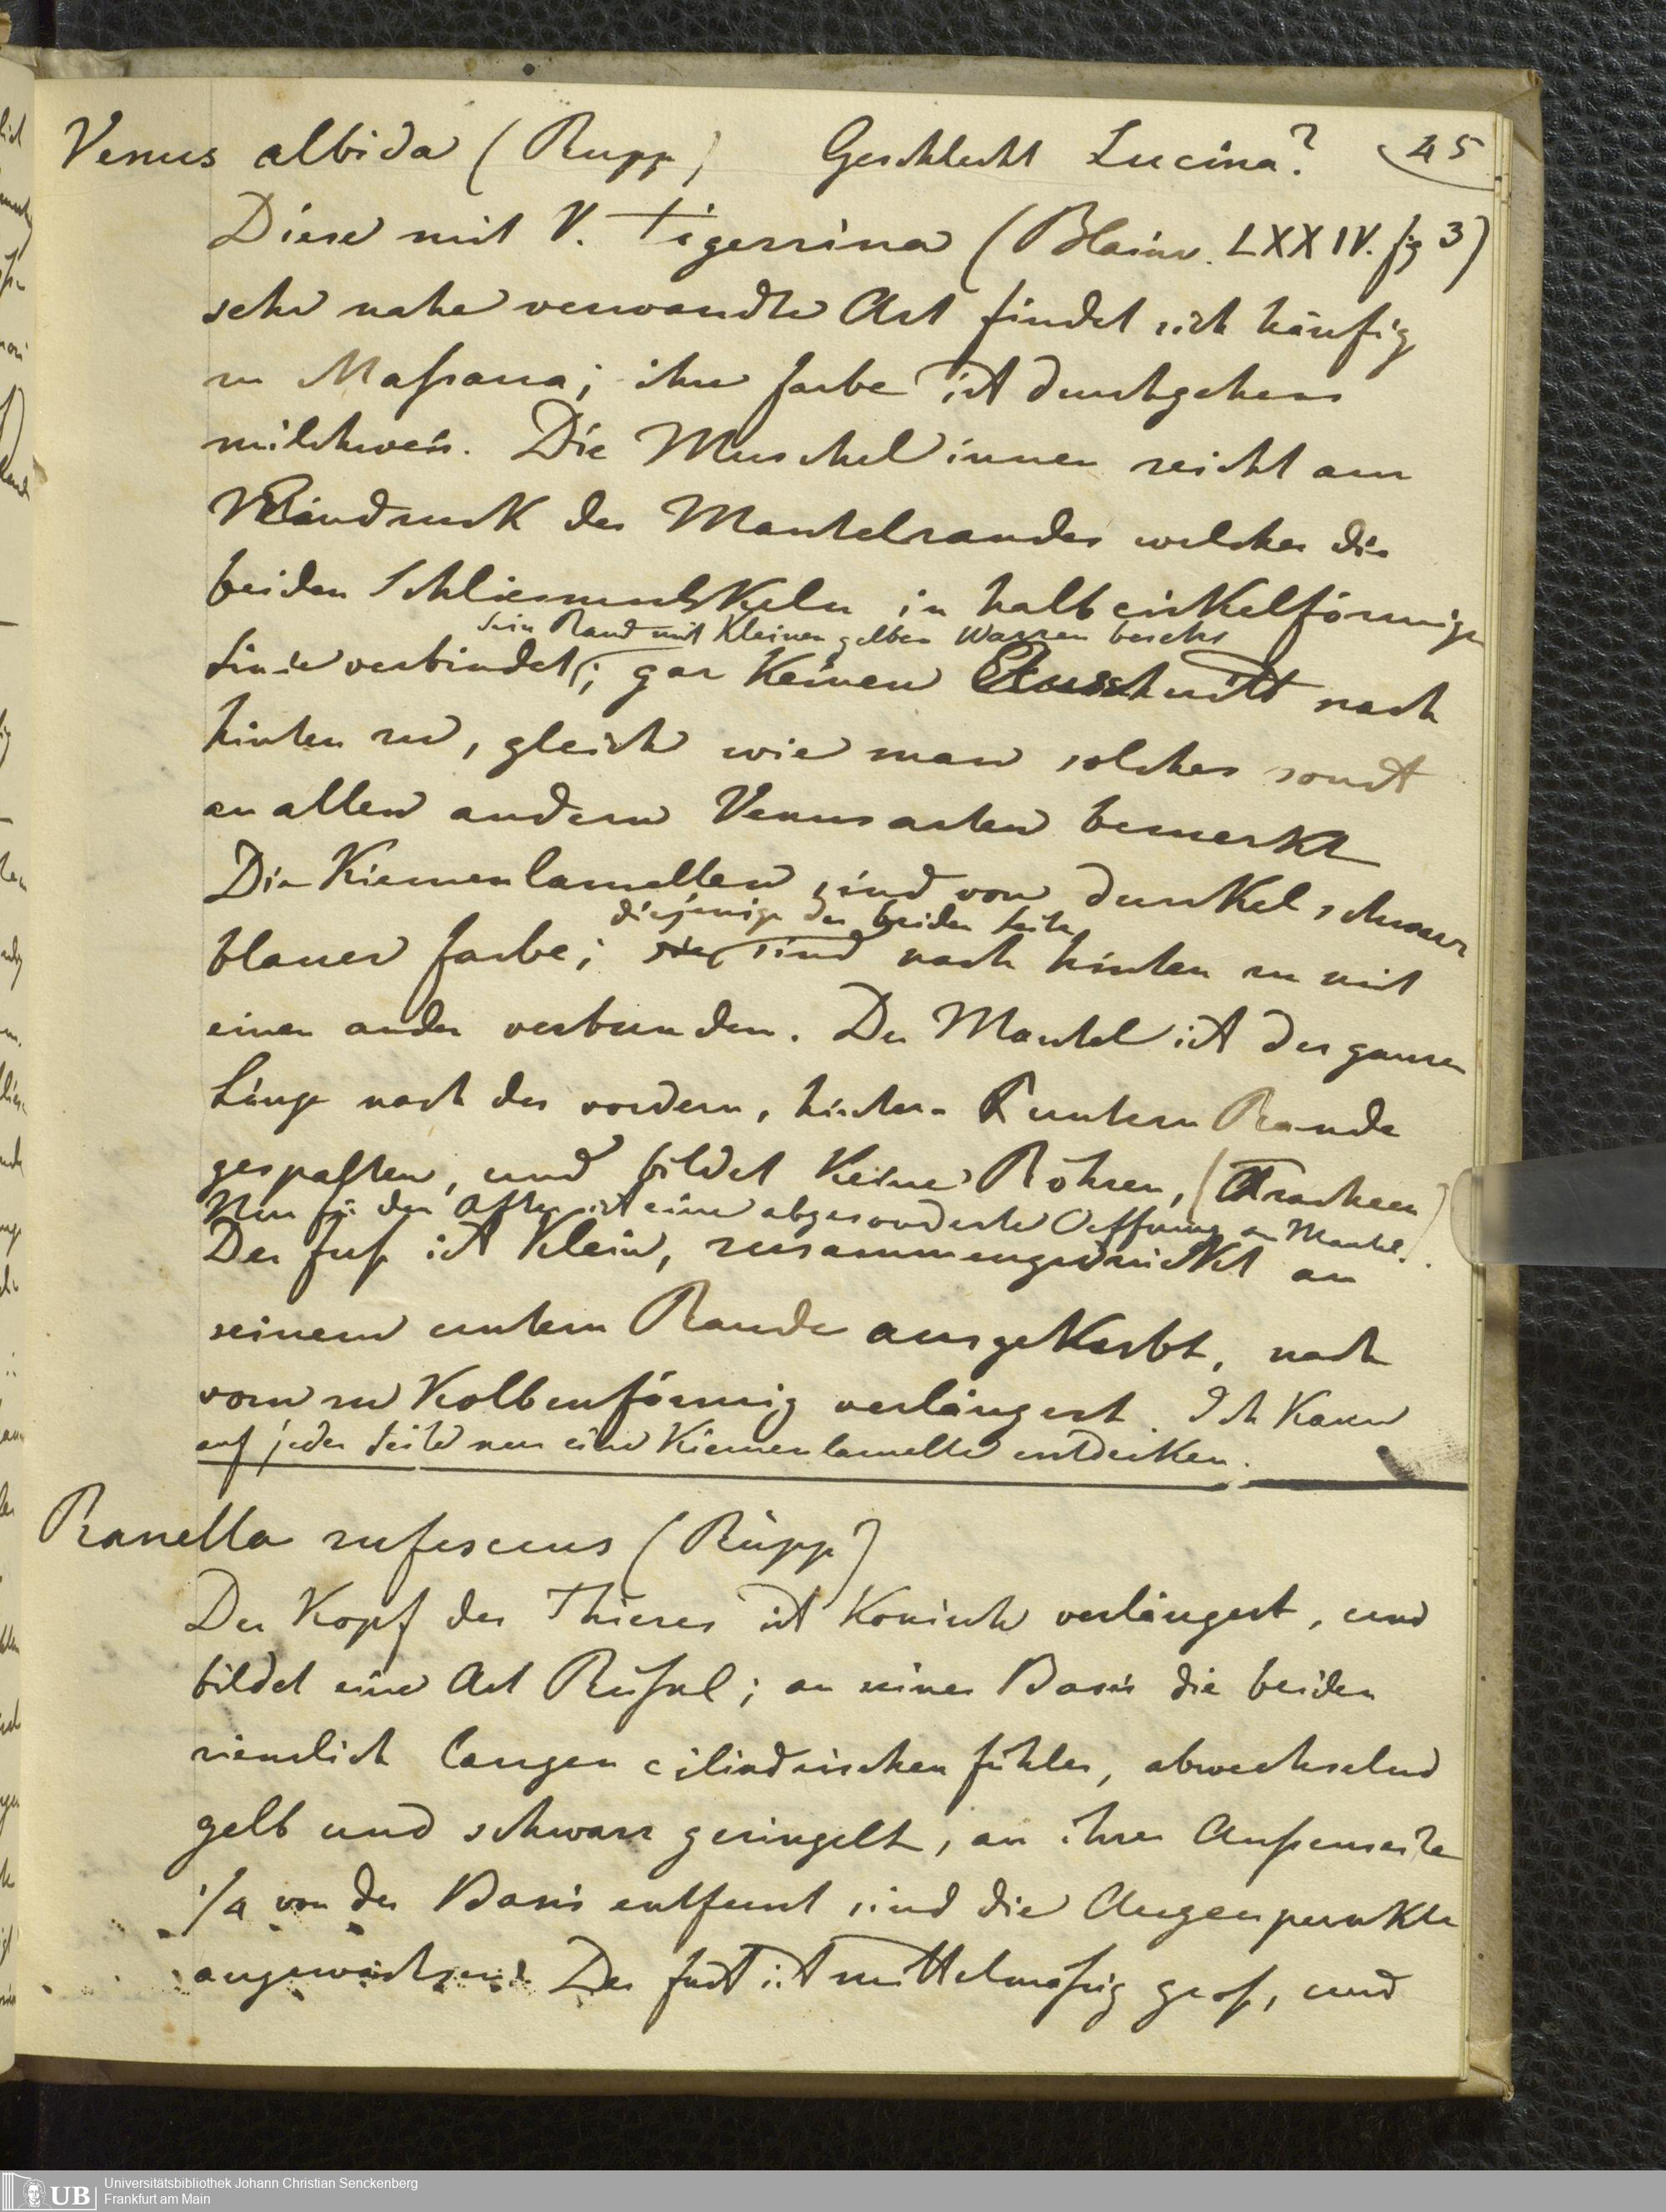 Venus albida (Rupp) Geschlecht Lucina? 45
Diese mit V. Tigerrina (Blainv. LXXIV. fig 3)
sehr nahe verwandte Art findet sich häufig
zu Maßaua; ihre Farbe ist durchgehens
milchweis. Die Muschel innen zeicht am
Eindruck des Mantelrandes welcher die
beiden Schliesmuskeln in halbcirkelförmige
sein Rand mit kleinen gelben Warzen besetzt
Linie verbindet; gar keinen Ausschnitt nach
hinten zu, gleich wie man solches sonst
an allen andern Venusarten bemerkt
Die Kiemenlamellen sind von dunkel schwarz
diejenige der beiden Seite
blauer Farbe; sie sind nach hinten zu mit
einen ander verbunden. Der Mantel ist der ganzen
Länge nach des vordern, hintern & untern Rande
gespalten, und bildet keine Röhren, (Tracheen)
Nur für den After ist eine abgesonderte Oeffnung am Mantel.
Der Fuß ist klein, zusammengedrückt an
seinem untern Rande ausgekerbt, nach
vorn zu kolbenförmig verlängert. Ich kann
auf jeder Seite nur eine Kiemenlamelle entdecken.
Ranella rufescens (Rüpp)
Der Kopf des Thieres ist konisch verlängert, und
bildet eine Art Rüßel; an seiner Basis die beiden
ziemlich langen cilindrischen Fühler, abwechselnd
gelb und schwarz geringelt, an ihrer Außenseite
1/4 von der Basis entfernt sind die Augenpunkte
angewachsen. Der Fuß ist mittelmäßig groß, und
Universitätsbibliothek Johann Christian Senckenberg
Frankfurt am Main
UB